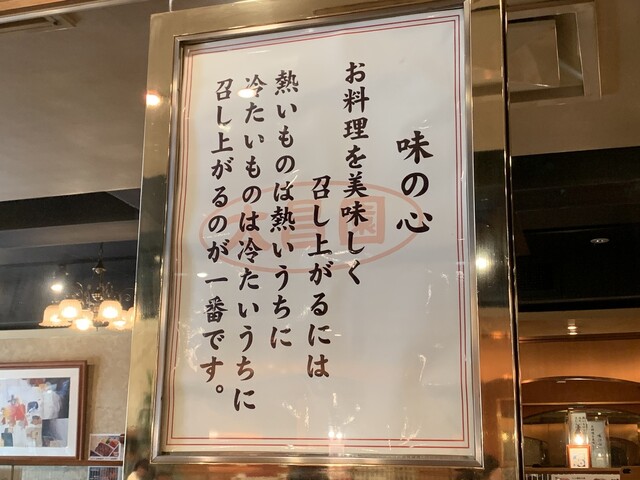 味の心
お料理を美味しく
召し上がるには
熱いものは熱いうちに
冷たいものは冷たいうちに
召し上がるのが一番です。